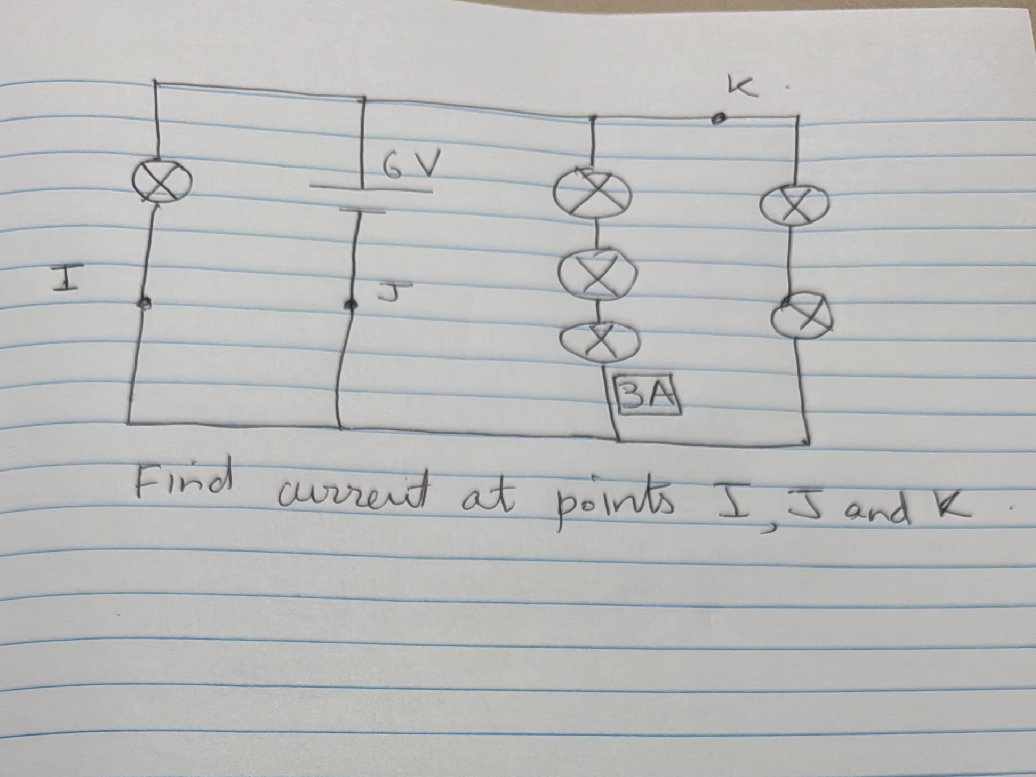 K
6 V
I
J
3A
Find current at points I, J and K.